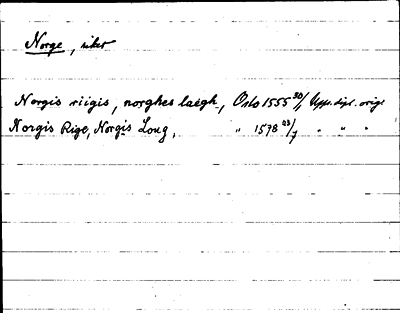 Norge, riket
Norgis riigis, norghes laegh, Oslo 1555 30/ Upps. dipl. orig.
Norgis Rige, Norgis Loug, " 1578 23/7 " " "